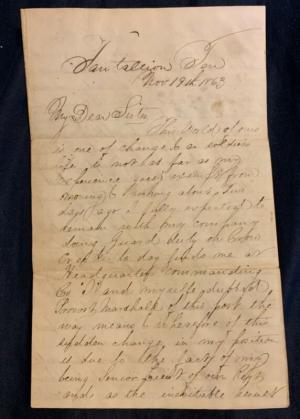 Tantallion Ten
Nov 19th 1863
My Dear Sister
This World of ours
is one of change & a soldiers
life is not as far as my
experience goes from
moving & knocking about, two
days ago I fully expected to
remain with my company
doing Guard duty on
Creek to day finds me at
Headquarters Commanding
Co and myself
Provost Marshall of this post the
way means & wherefore of this
sudden change, in my position
is due to the fact of my
being Senior Lieut of our Regt
and as the inevitable